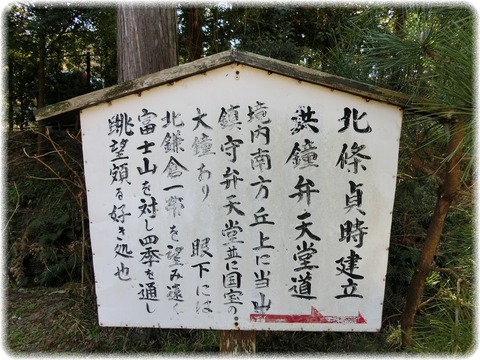 北條貞時建立
洪鐘弁天堂道
境内南方丘上に当山
鎮守弁天堂並に国宝の
大鐘あり 眼下には
北鎌倉一帯を望み遠く
富士山を対し四季を通し
眺望頗る好き処也